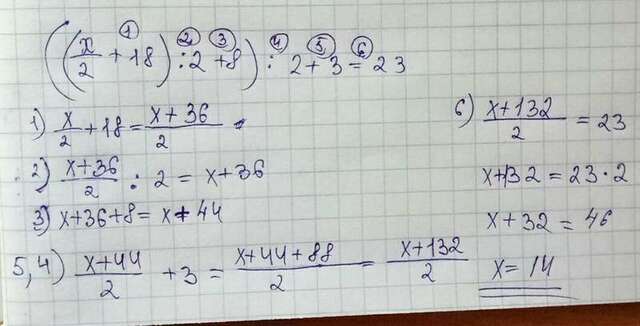 ((x/2 + 18) : 2 + 8) : 2 + 3 = 23
① ② ③ ④ ⑤ ⑥
1) x/2 + 18 = (x + 36)/2
2) (x+36)/2 : 2 = x+36
3) x+36+8 = x+44
5,4) (x+44)/2 + 3 = (x+44+88)/2 = (x+132)/2
6) (x+132)/2 = 23
x+132 = 23·2
x+32 = 46
x = 14